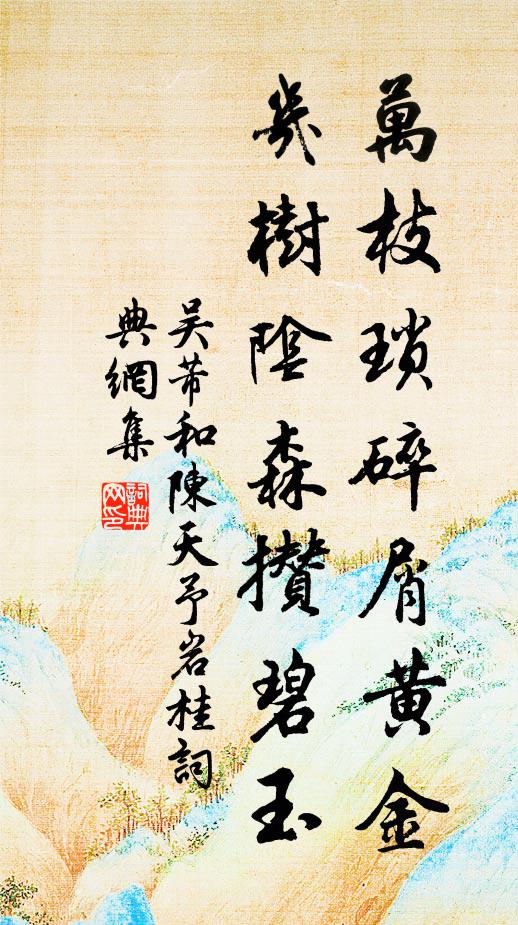 萬枝瑣碎屑黃金
幾樹陰森攅碧玉
吴芾和陳天予岩桂詞
典網集
詞典
网印